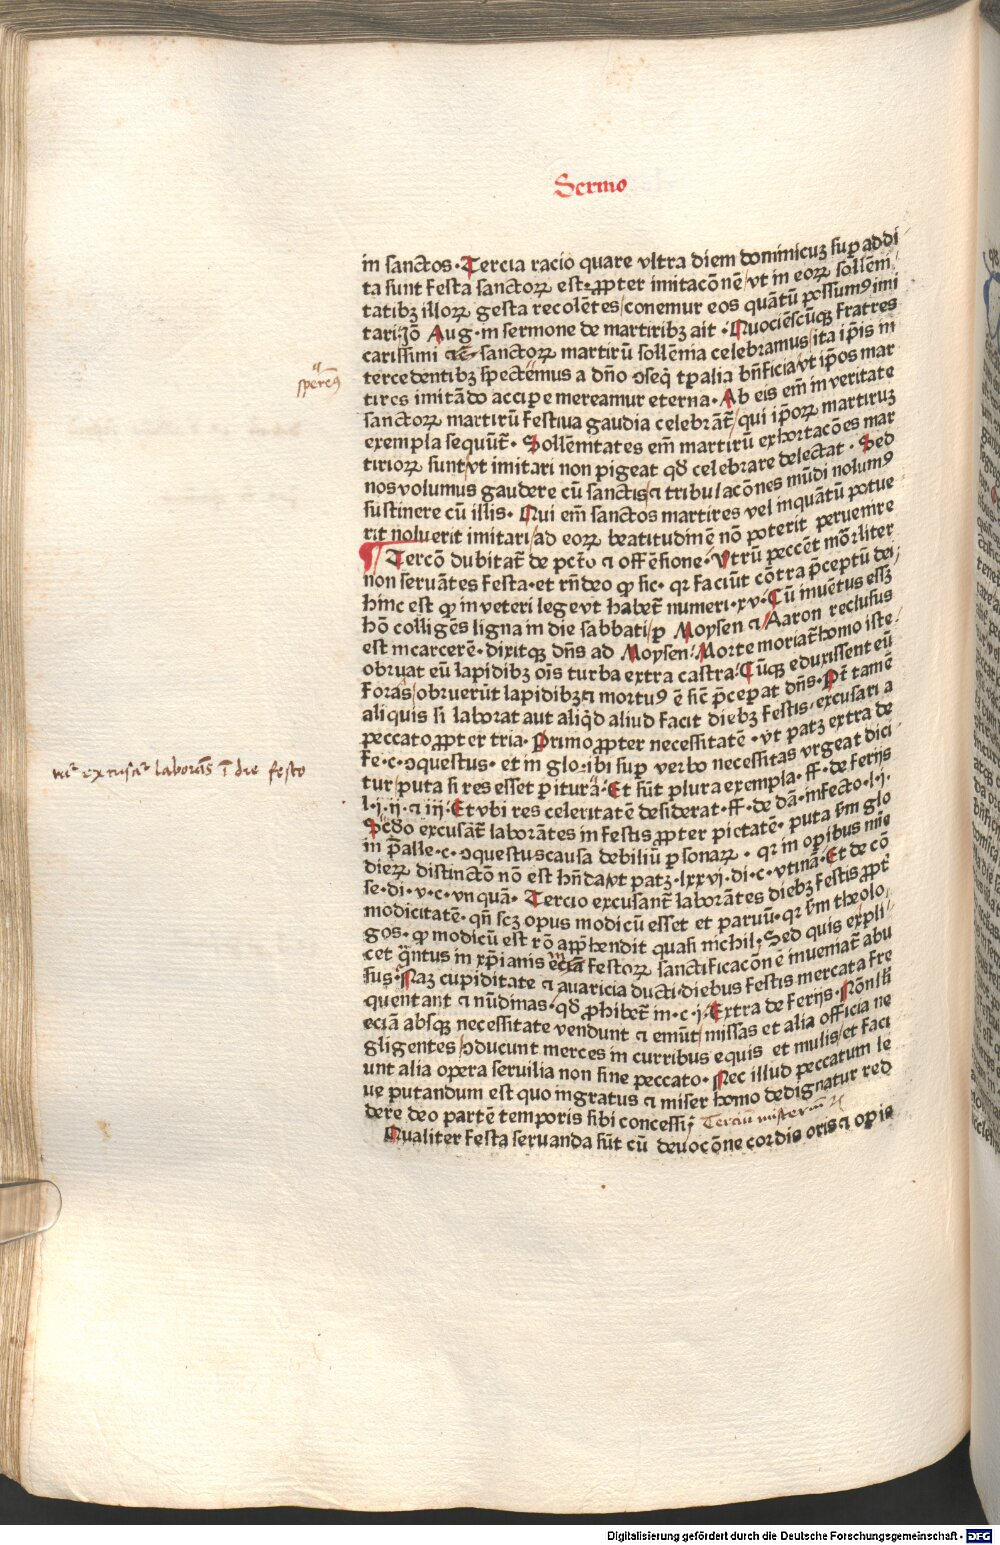 Sermo
in sanctos. Tercia racio quare vltra diem dominicuꝫ suꝑ addi
ta sunt festa sanctoꝝ est. ꝓpter imitacōnē/vt in eoꝝ sollēm
tatibꝫ illoꝝ gesta recolētes/conemur eos quātū possumꝰ imi
tari. Jō Aug. in sermone de martiribꝫ ait. Quociēscūqꝫ fratres
carissimi ⁊ē sanctoꝝ martirū sollēnia celebramus/ita ip̄is in
tercedentibꝫ spectēmus a dn̄o ↄseq̄ tp̄alia bn̄ficia/vt ip̄os mar
a
sperēꝰ
tires imitādo accipe mereamur eterna. Ab eis em̄ in veritate
sanctoꝝ martirū festiua gaudia celebrāt̄/qui ip̄oꝝ martiruꝫ
exempla sequūt̄. Sollēmtates em̄ martirū exhortacōes mar
tirioꝝ sunt/vt imitari non pigeat qd̄ celebrare delectat. Sed
nos volumus gaudere cū sanctis/⁊ tribulacōnes mūdi nolumꝰ
sustinere cū illis. Qui em̄ sanctos martires vel inquātū potue
rit noluerit imitari/ad eoꝝ beatitudinē nō poterit peruenire
Tercō dubitat̄ de pctō ⁊ offēsione. Vtrū peccēt mōrliter
non seruātes festa. et rn̄deo ꝙ sic. qꝛ faciūt cōtra p̄ceptū dei
hinc est ꝙ in veteri lege vt habet̄ numeri. xv. Cū inuētus essꝫ
hō colligēs ligna in die sabbati/ꝑ Moysen ⁊ Aaron reclusus
est in carcerē. dixitqꝫ dn̄s ad Moysen. Morte moriat̄ homo iste.
obruat eū lapidibꝫ oīs turba extra castra. Cūqꝫ eduxissent eū
foras/obruerūt lapidibꝫ/⁊ mortuꝰ ē sic̄ p̄ceperat dn̄s. Pt̄ tamē
aliquis si laborat aut aliq̄d aliud facit diebꝫ festis. excusari a
peccato ꝓpter tria. Primo ꝓpter necessitatē. vt patꝫ extra de
fe. c. ↄquestus. et in glo. ibi suꝑ verbo necessitas vrgeat dici
nō excusāt laborās ī die festo
tur/puta si res esset peritura. Et sūt plura exempla. ff. de ferijs
l. j. ij. ⁊ iij. Et vbi res celeritatē desiderat. ff. de dā. infecto. l. j.
Scdo excusāt̄ laborātes in festis ꝓpter pietatē. puta sm̄ glo
in p̄alle. c. ↄquestus causa debiliū ꝑsonaꝝ. qꝛ in oꝑibus mīe
dieꝝ distinctō nō est hn̄da/vt patꝫ. lxxvj. di. c. vtinā. Et de cō
se. di. v. c. vnquā. Tercio excusant̄ laborātes diebꝫ festis ꝓpt̄
modicitatē. qn̄ scꝫ opus modicū esset et paruū. qꝛ sm̄ theolo
gos. ꝙ modicū est rō app̄hendit quasi nichil. Sed quis expli
cet q̄ntus in xp̄ianis eciā festoꝝ sanctificacōnē inueniat̄ abu
sus. Naꝫ cupiditate ⁊ auaricia ducti. diebus festis mercata fre
quentant ⁊ nūdinas. qd̄ ꝓhibet̄ in. c. j. Extra de ferijs. Nōnlli
eciā absqꝫ necessitate vendunt ⁊ emūt/missas et alia officia ne
gligentes/ↄducunt merces in curribus equis et mulis/et faci
unt alia opera seruilia non sine peccato. Nec illud peccatum le
ue putandum est quo ingratus ⁊ miser homo dedignatur red
dere deo partē temporis sibi concessi. Terciū misteriū
Qualiter festa seruanda sūt cū deuocōne cordis oris ⁊ opis
Digitalisierung gefördert durch die Deutsche Forschungsgemeinschaft - DFG